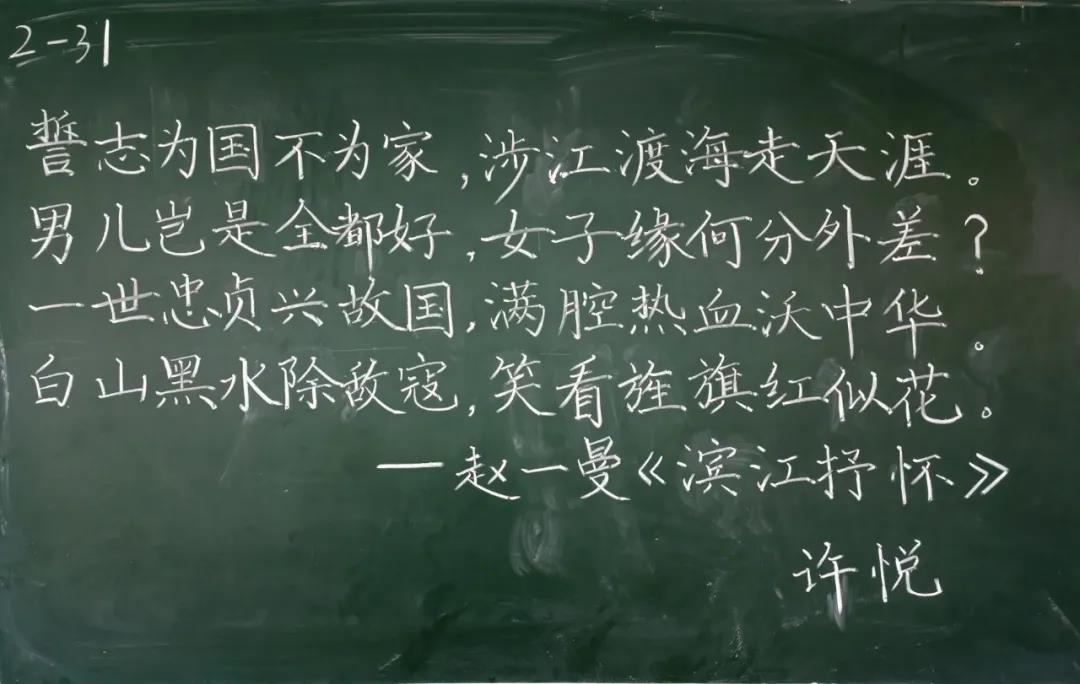 2-31
誓志为国不为家,涉江渡海走天涯。
男儿岂是全都好,女子缘何分外差?
一世忠贞兴故国,满腔热血沃中华。
白山黑水除敌寇,笑看旌旗红似花。
—赵一曼《滨江抒怀》
许悦